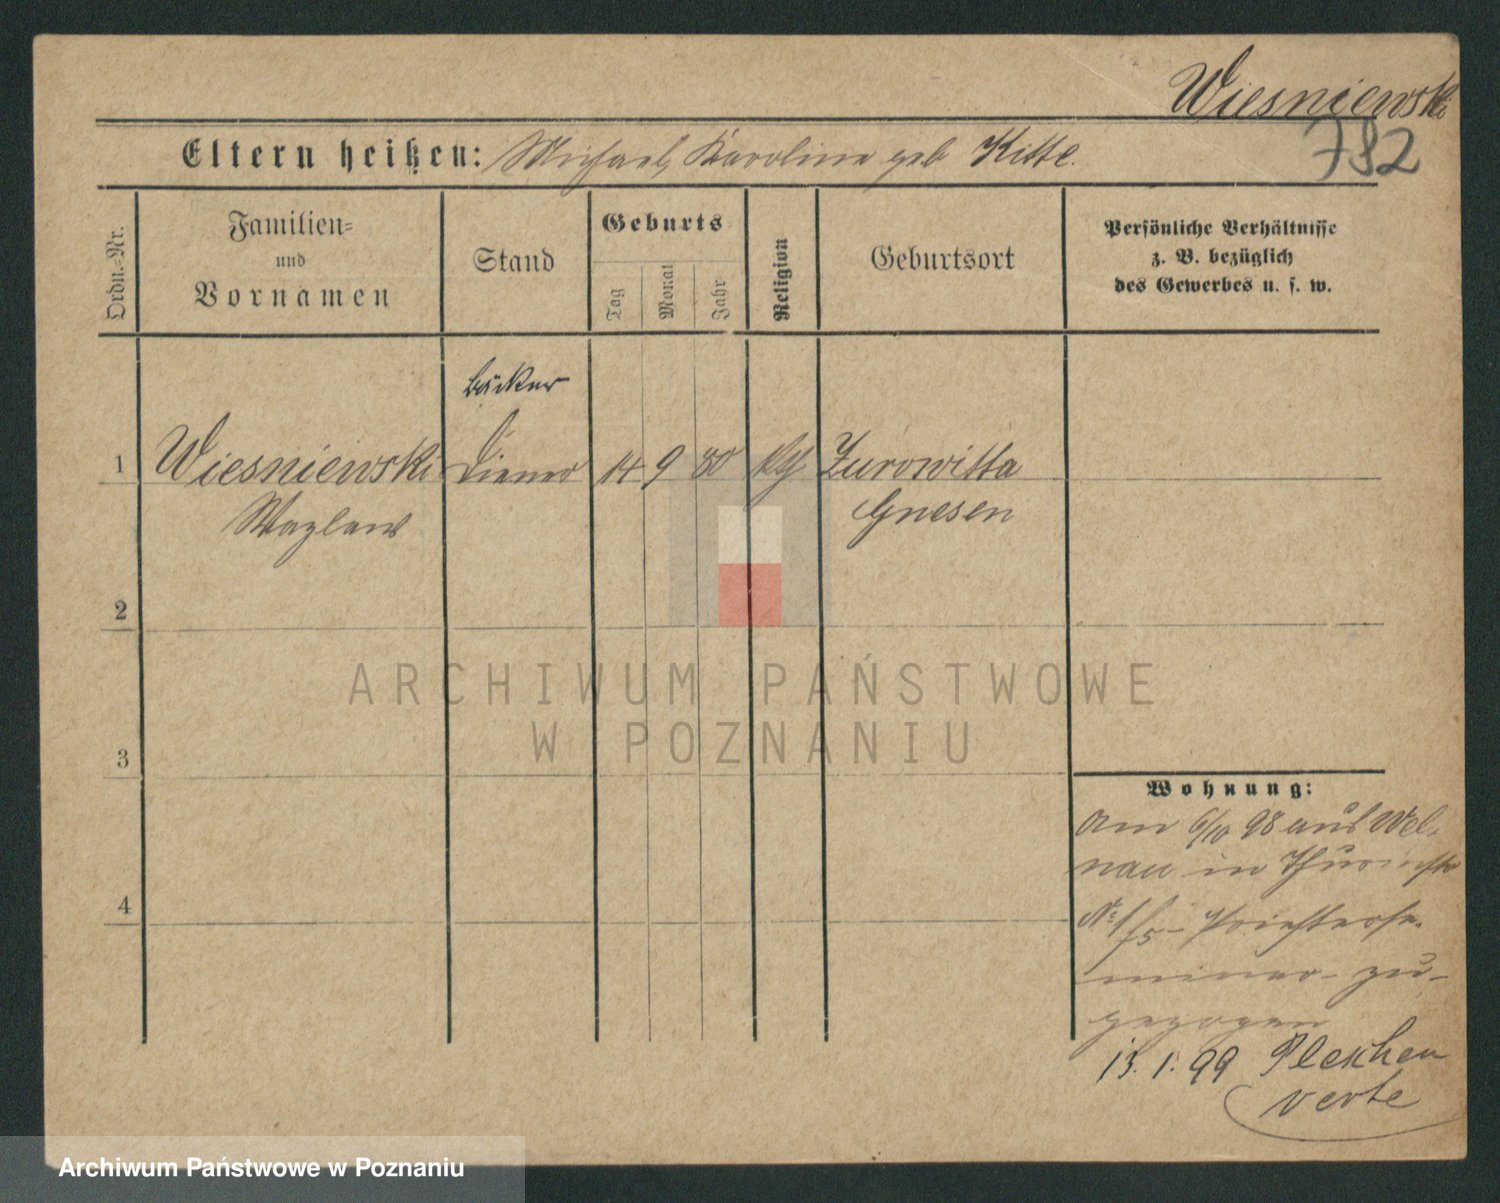 Wiesniewski
782
Eltern heißen: Michael, Karolina geb Kitte.
Ordn.-Nr.
Familien-
und
Vornamen
Stand
Geburts
Tag
Monat
Jahr
Religion
Geburtsort
Persönliche Verhältnisse
z. B. bezüglich
des Gewerbes u. s. w.
Bäcker
1 Wiesniewski Diener 14 9 80 Zurowitta
Wazlaw Gnesen
2
3
4
ARCHIWUM PAŃSTWOWE
W POZNANIU
Wohnung:
Am 6/10 98 aus Wel-
nau in
No 1/5 - Priesterse-
minar - zu-
gezogen
13. 1. 99 Pleschen
verte
Archiwum Państwowe w Poznaniu